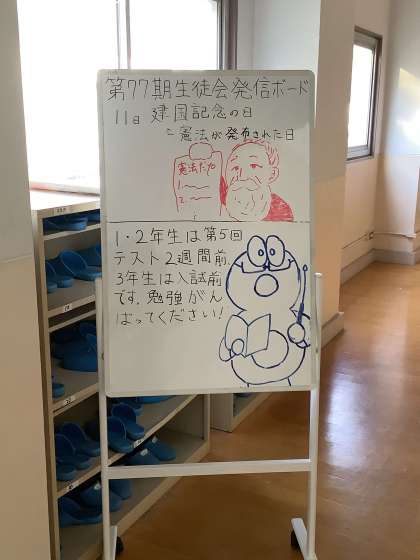 第77期生徒会発信ボード
11日 建国記念の日
憲法が発布された日
憲法だか
1.
2.
1・2年生は第5回
テスト2週間前.
3年生は入試前
です.勉強がん
ばってください!